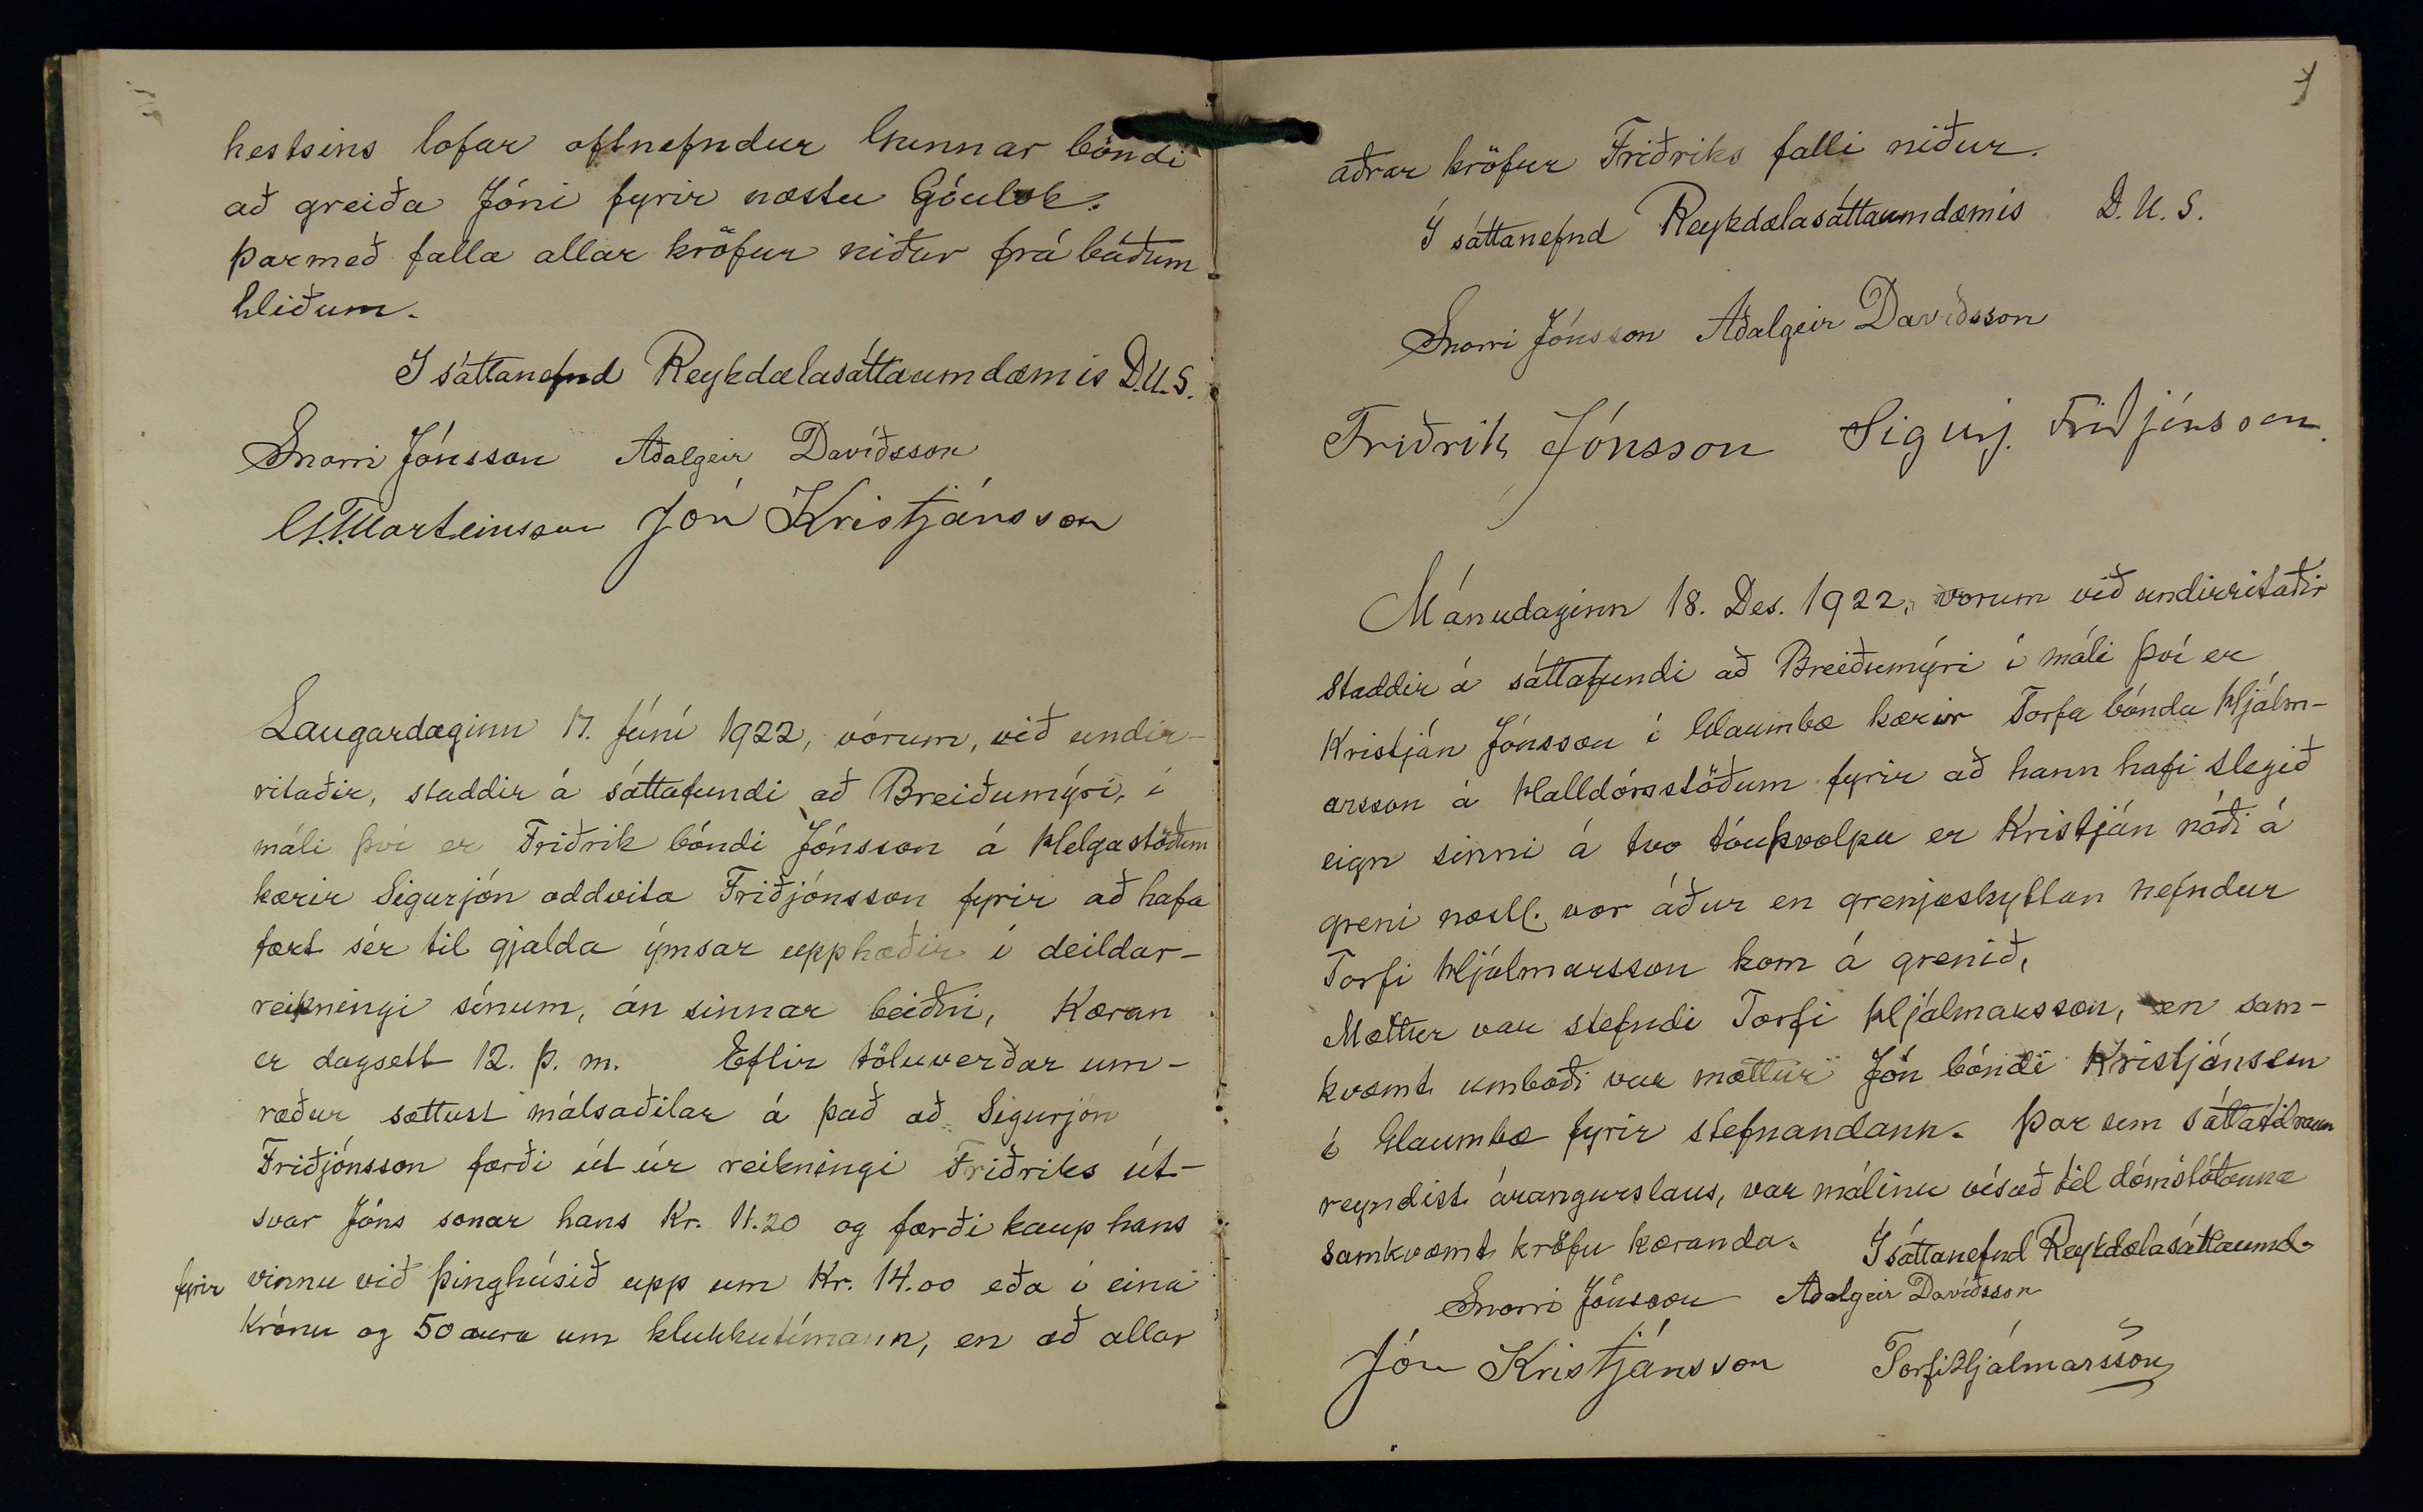 hestsins lofar oftnefndur Gunnar bóndi
að greiða Jóni fyrir næstu Góulok.
Þarmeð falla allar kröfur niður frá báðum
hliðum.
Í sáttanefnd Reykdælasáttaumdæmis D.U.S.
Snorri Jónsson Aðalgeir Davíðsson
G.T. Marteinsson Jón Kristjánsson
Laugardaginn 17. júní 1922, vórum, við undir-
ritaðir, staddir á sáttafundi að Breiðumýri, í
máli því er Friðrik bóndi Jónsson á Helgastöðum
kærir Sigurjón oddvita Friðjónsson fyrir að hafa
fært sér til gjalda ýmsar upphæðir í deildar-
reikningi sínum, án sinnar beiðni, Kæran
er dagsett 12. þ. m. Eftir töluverðar um-
ræður sættust málsaðilar á það að Sigurjón
Friðjónsson færði út úr reikningi Friðriks út-
svar Jóns sonar hans Kr. 11.20 og færði kaup hans
fyrir vinnu við þinghúsið upp um Kr. 14.00 eða í eina
Krónu og 50 aura um klukkutímann, en að allar
aðrar kröfur Friðriks falli niður.
Í sáttanefnd Reykdælasáttaumdæmis D.U.S.
Snorri Jónsson Aðalgeir Davíðsson
Friðrik Jónsson Sigurj. Friðjónsson.
Mánudaginn 18. Des. 1922, vorum við undirritaðir
staddir á sáttafundi að Breiðumýri í máli því er
Kristján Jónsson í Glaumbæ kærir Torfa bónda Hjálm-
arsson á Halldórsstöðum fyrir að hann hafi slegið
eign sinni á tvo tóuhvolpa er Kristján náði á
greni næstl. vor áður en grenjaskyttan nefndur
Torfi Hjálmarsson kom á grenið,
Mættur var stefndi Torfi Hjálmarsson, en sam-
kvæmt umboði var mættur Jón bóndi Kristjánsson
í Glaumbæ fyrir stefnandann. Þar sem sáttatilraun
reyndist árangurslaus, var málinu vísað til dómstólanna
samkvæmt kröfu kæranda. Í sáttanefnd Reykdælasáttaumd.
Snorri Jónsson Aðalgeir Davíðsson
Jón Kristjánsson Torfi Hjálmarsson